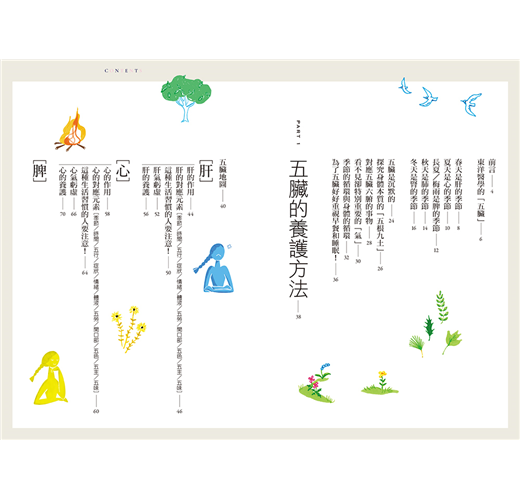 CNET
前言——4
東洋醫學的「五臟」——6
春天是肝的季節——8
夏天是心的季節——10
長夏/梅雨是脾的季節——12
秋天是肺的季節——14
冬天是腎的季節——16
五臟是沉默的——24
探究身體本質的「五根九土」——26
對應五臟六腑的事物——28
看不見卻特別重要的「氣」——30
季節的循環與身體的循環——32
為了五臟好好重視早餐和睡眠!——36
PART 1
五臟的養護方法——38
五臟地圖——40
[肝]
肝的作用——44
肝的對應元素
這種生活習慣的人要注意!——50
肝氣虧虛——52
肝的養護——56
[心]
心的作用——58
心的對應元素
這種生活習慣的人要注意!——64
心氣虧虛——66
心的養護——70
[脾]